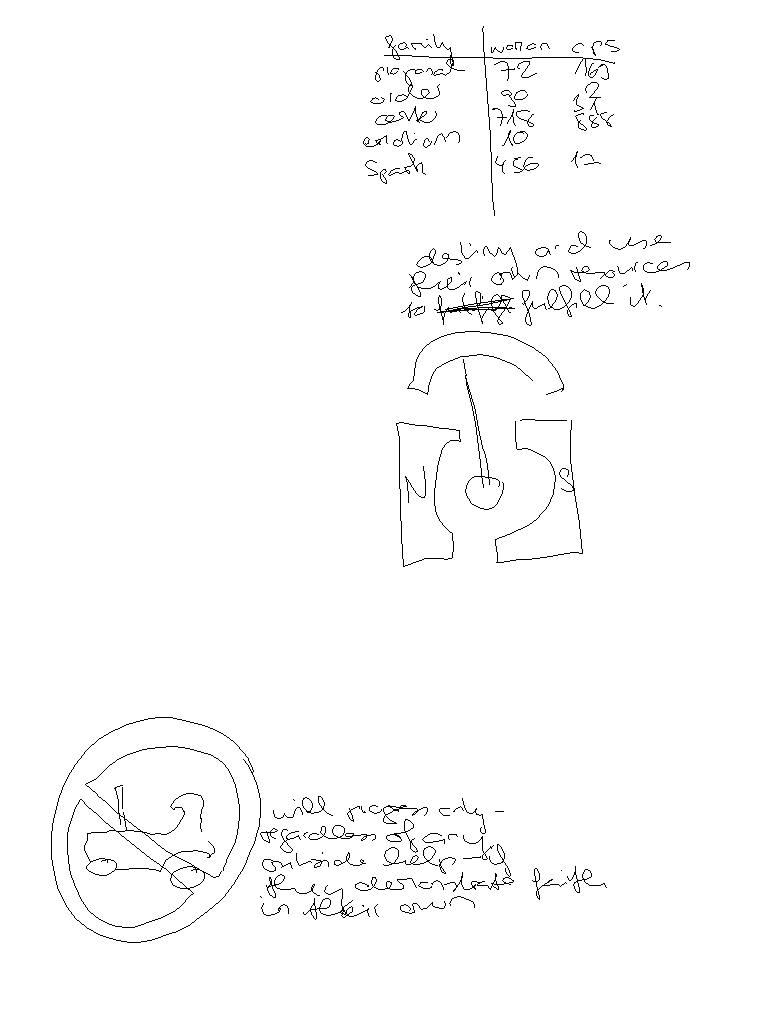 family woman cps
proposal 72 169
order 90 2
caste 718 31 888
10
Spark 456 12
destiny and use
their own resources
to fulfill it.
N S
will progress only -
regardless of any
outside help - if
they demonstrate faith
in their own